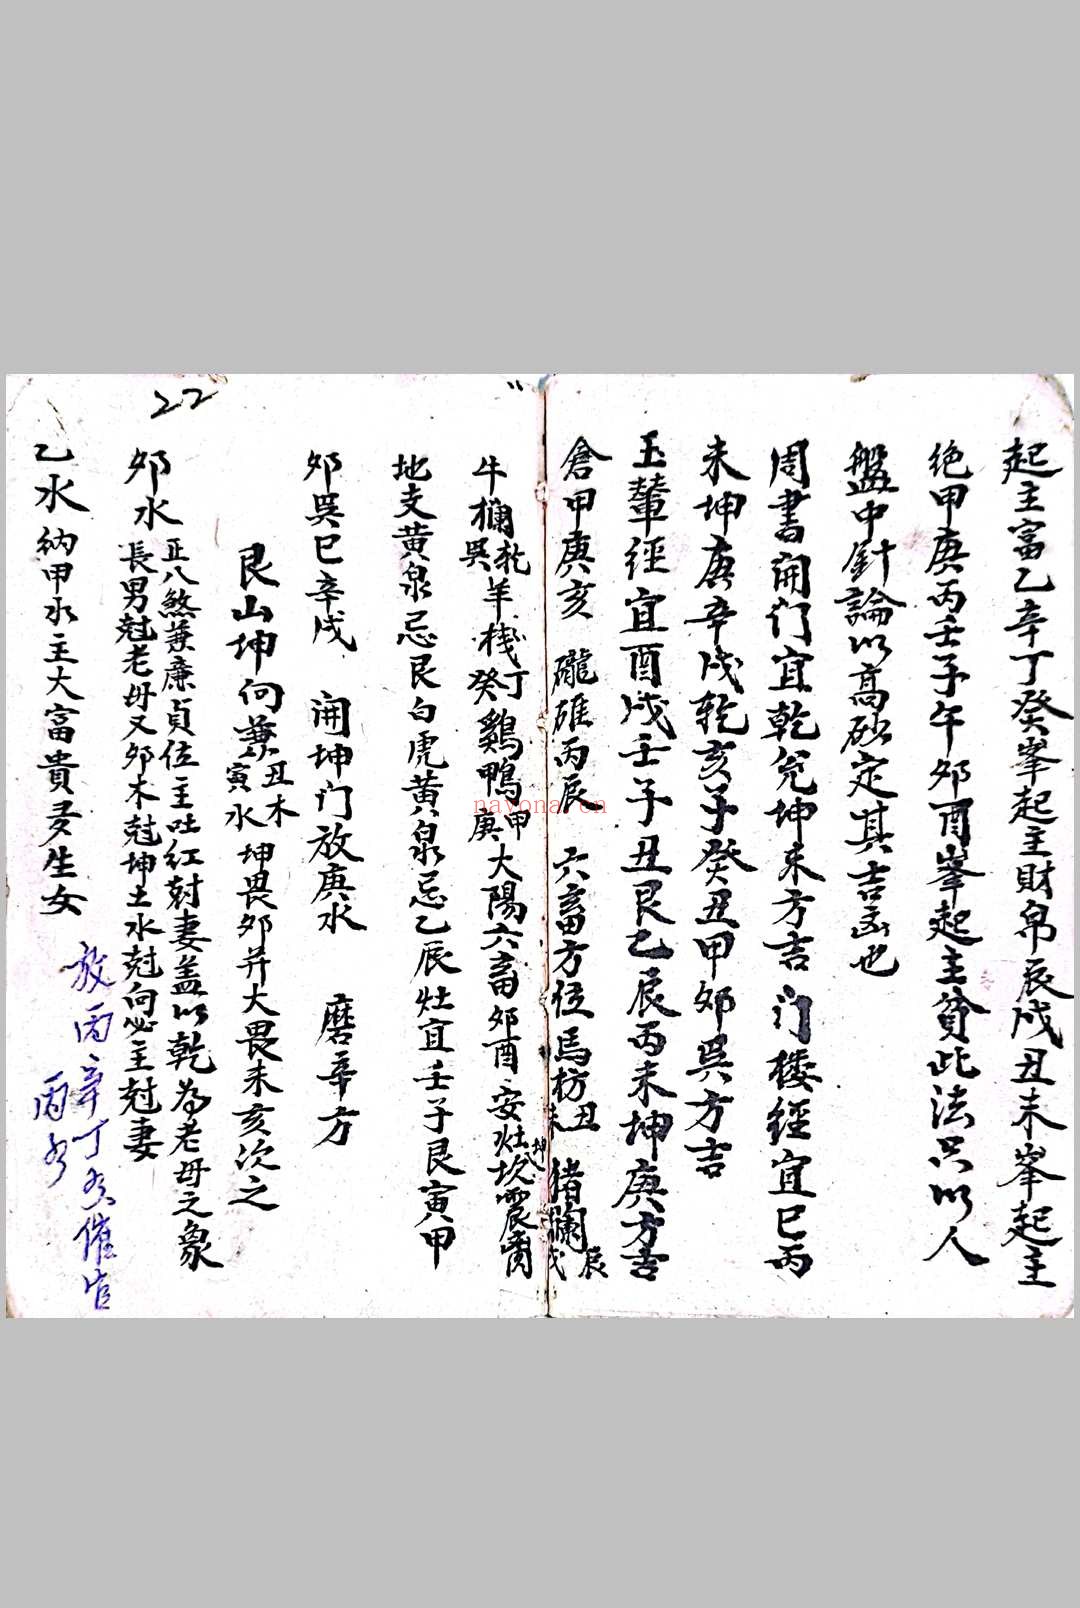 起主富乙辛丁癸峯起主財帛辰戌丑未峯起主
绝甲庚丙壬子午夘酉峯起主貧此法只以人
盤中針論以高砂定其吉凶也
周書開门宜乾兊坤未方吉 门楼經宜巳丙
未坤庚辛戌乾亥子癸丑甲夘巽方吉
玉輦經宜酉戌壬子丑艮乙辰丙未坤庚方吉
倉甲庚亥 礲碓丙辰 六畜方位馬枋丑未 猪欄辰戌
牛欄乾巽羊栈丁癸鷄鴨甲庚大陽六畜夘酉安灶坎震
地支黄泉忌艮白虎黄泉忌乙辰灶宜壬子艮寅甲
夘巽巳辛戌 開坤门放庚水 磨辛方
艮山坤向兼丑木寅水坤畏夘并大畏未亥次之
夘水正八煞兼廉貞位主吐红尅妻盖以乾為老母之象
長男尅老母又夘木尅坤土水尅向必主尅妻
乙水納甲水主大富貴多生女
放丙辛丁 催官
丙
22
nayona.cn